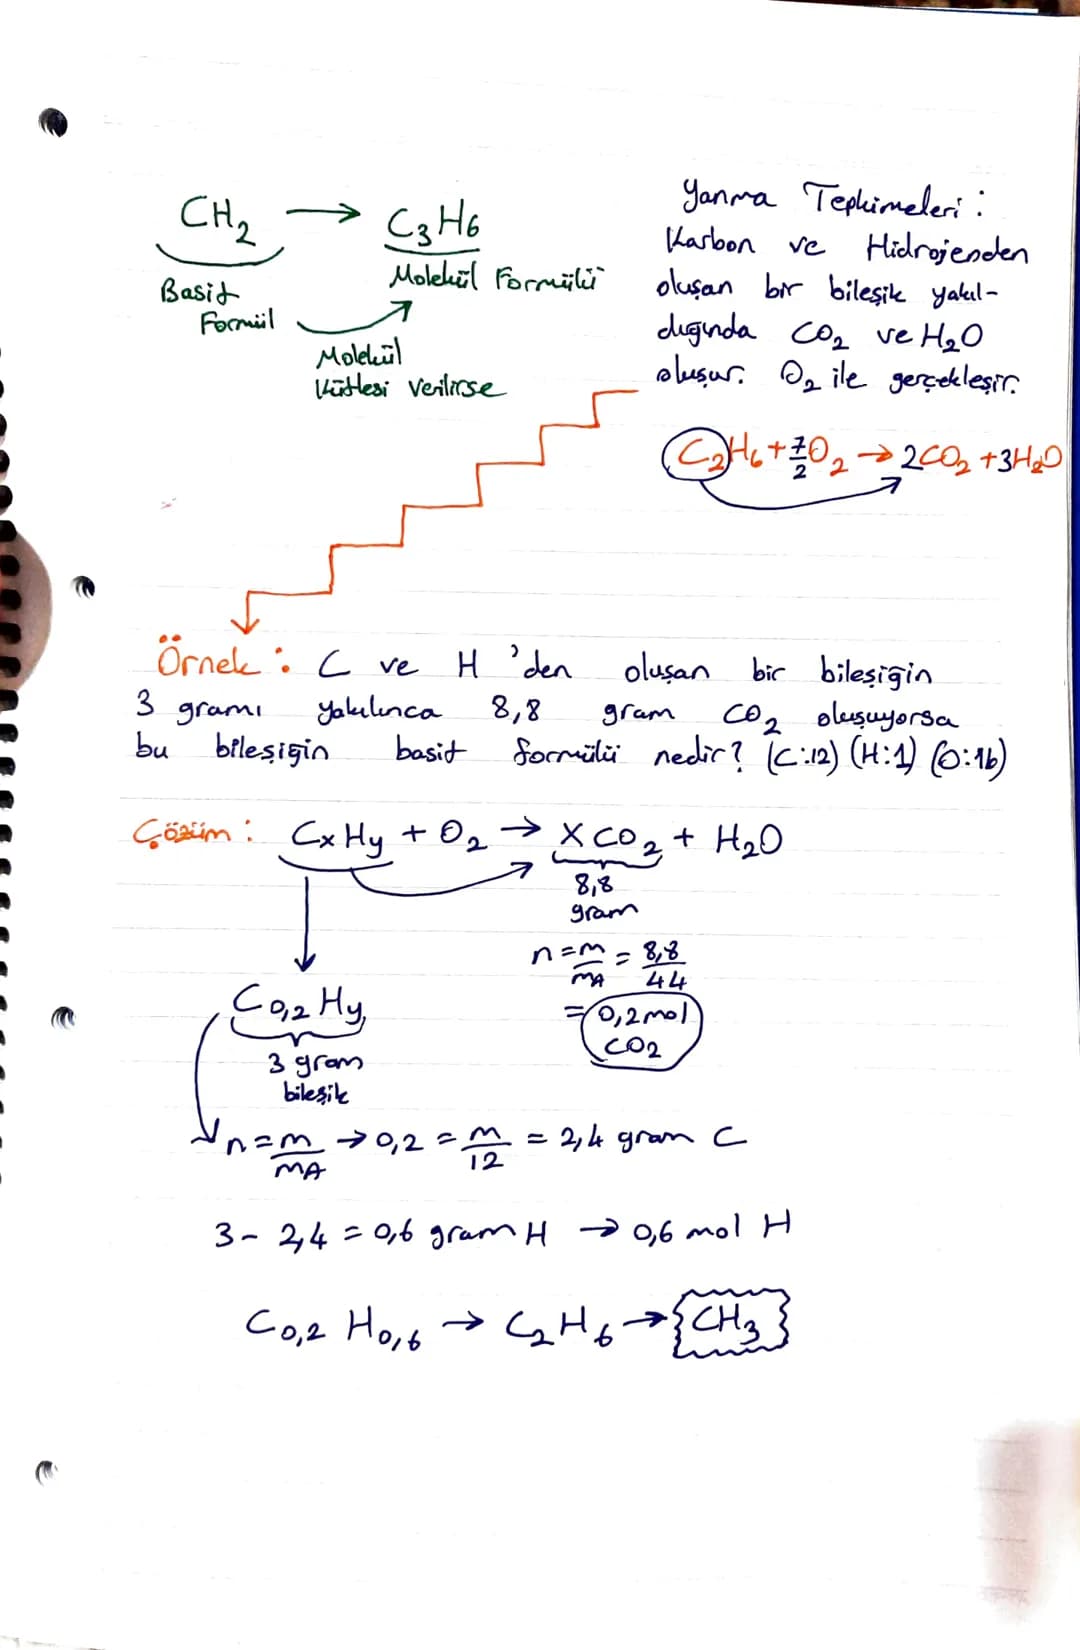 CH₂ → C₃H₆
Basit
Formül
Molekül Formülü
Molekül
Kütlesi Verilirse
Yanma Tepkimeleri :
Karbon ve Hidrojenden
oluşan bir bileşik yakıl-
dığında CO₂ ve H₂O
oluşur. O₂ ile gerçekleşir.
C₂H₆ + 7/2 O₂ → 2CO₂ + 3H₂O
Örnek : C ve H 'den oluşan bir bileşiğin
3 gramı yakılınca 8,8 gram CO₂ oluşuyorsa
bu bileşiğin basit formülü nedir? (C:12) (H:1) (O:16)
Çözüm : CxHy + O₂ → XCO₂ + H₂O
8,8
gram
n = m/MA = 8,8/44
= 0,2 mol
CO₂
C₀,₂ Hy
3 gram
bileşik
n = m/MA → 0,2 = m/12 = 2,4 gram C
3 - 2,4 = 0,6 gram H → 0,6 mol H
C₀,₂ H₀,₆ → C₂H₆ → {CH₃}